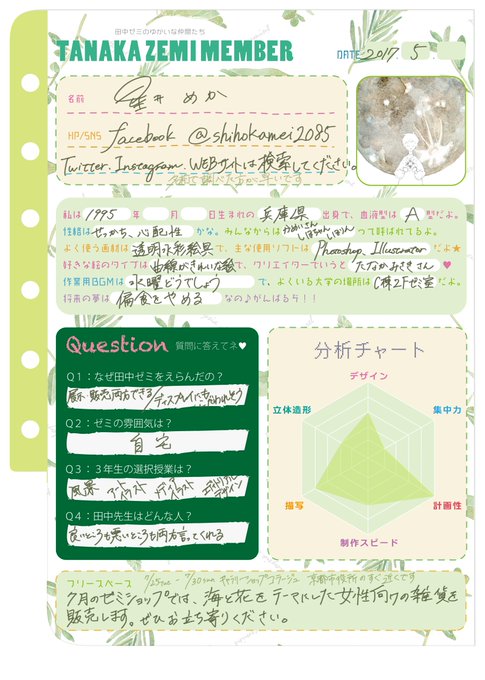 田中ゼミのゆかいな仲間たち
TANAKA ZEMI MEMBER
DATE 2017. 5.
名前 めか
HP/SNS facebook @shihokamei2085
Twitter Instagram WEBサイトは検索してください。
私は1995年 月 日生まれの兵庫県出身で、血液型はA型だよ。
性格はせっかち、心配性かな。みんなからはかめいさん しほちゃん って呼ばれてるよ。
よく使う画材は透明水彩絵具で、主な使用ソフトはPhotoshop, Illustratorだよ★
好きな絵のタイプは曲線がきれいな絵で、クリエイターでいうとたなかみさきさん♥
作業用BGMは水曜どうでしょうで、よくいる大学の場所はC棟2Fゼミ室だよ。
将来の夢は偏食をやめるなの♪がんばるぞ!!
Question 質問に答えてネ♥
Q1:なぜ田中ゼミをえらんだの?
展示・販売両方できる/ディスプレイにも
Q2:ゼミの雰囲気は?
自宅
Q3:3年生の選択授業は?
風景
Q4:田中先生はどんな人?
良いところも悪いところも両方言ってくれる
分析チャート
デザイン
立体造形
集中力
描写
計画性
制作スピード
フリースペース
7月のゼミショップでは、海と花をテーマにした女性向けの雑貨を
販売します。ぜひお立ち寄りください。